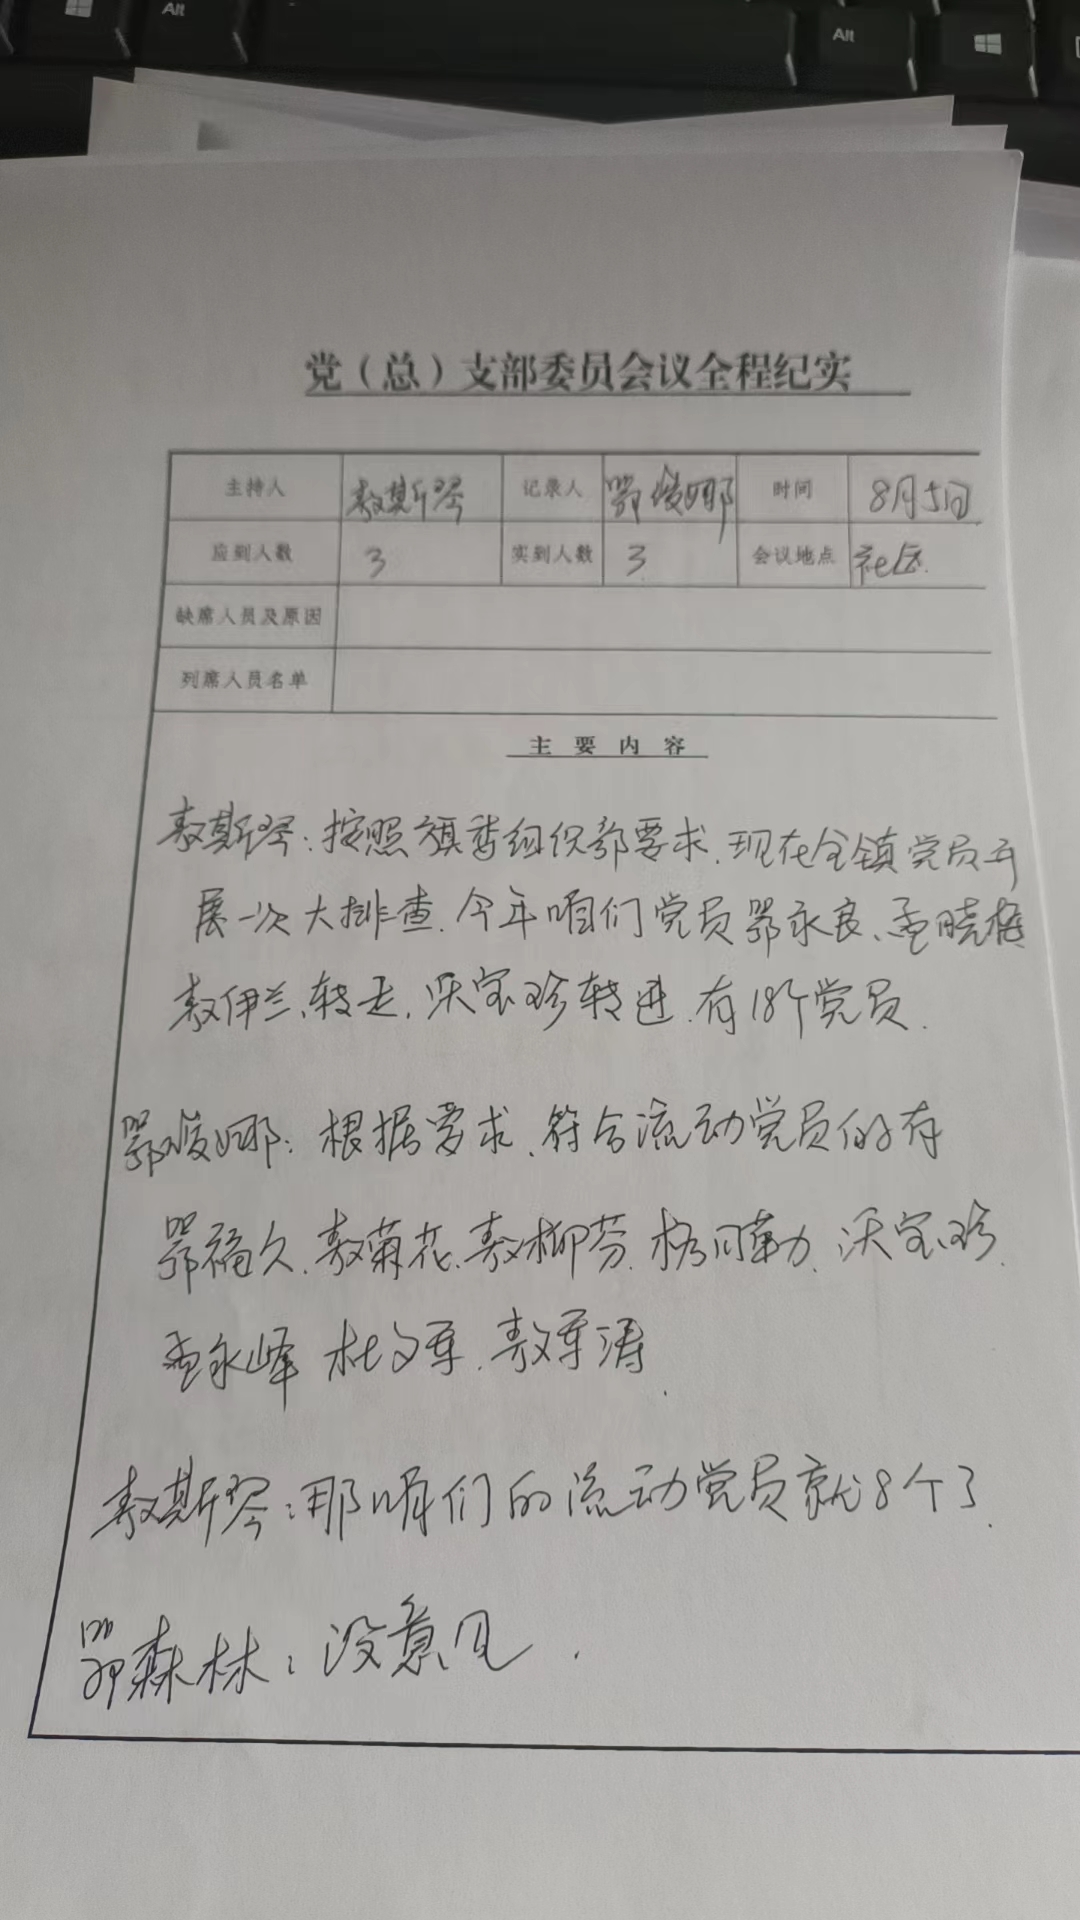 Alt
Alt
党（总）支部委员会议全程纪实
主持人 敖斯琴 记录人 鄂俊娜 时间 8月5日
应到人数 3 实到人数 3 会议地点 社区.
缺席人员及原因
列席人员名单
主 要 内 容
敖斯琴：按照旗委组织部要求、现在全镇党员开
展一次大排查、今年咱们党员鄂永良、孟晓梅
敖伊兰、转走，沃宝珍转进、有18个党员.
鄂俊娜：根据要求、符合流动党员的有
鄂福久、敖菊花、敖柳芬、格日勒、沃宝珍、
孟永峰 杜文军、敖军涛.
敖斯琴：那咱们的流动党员就8个了.
鄂森林：没意见.